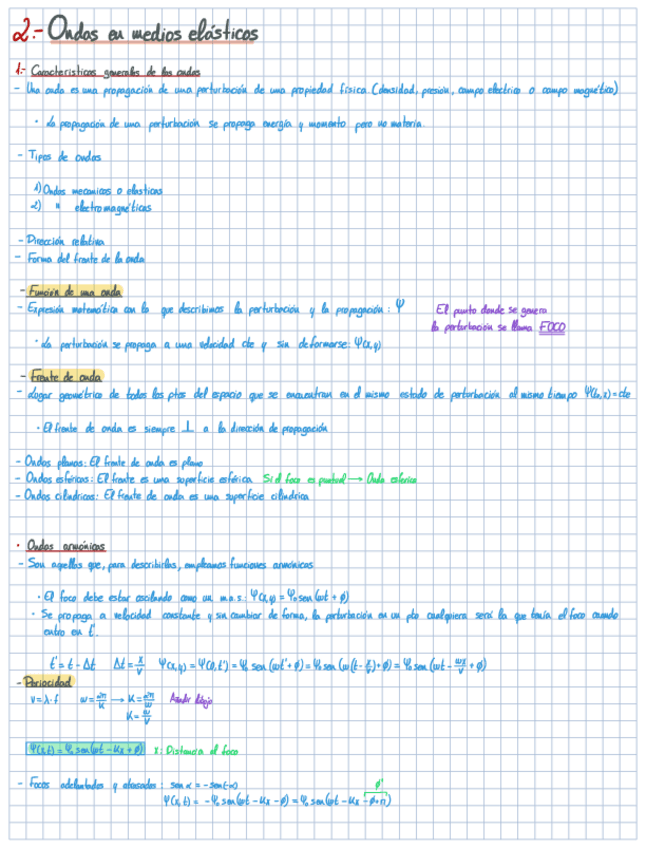 2.- Ondas en medios elásticos
1.- Características generales de las ondas
- Una onda es una propagación de una perturbación de una propiedad física (densidad, presión, campo eléctrico o campo magnético)
· La propagación de una perturbación se propaga energía y momento pero no materia.
- Tipos de ondas
1) Ondas mecánicas o elásticas
2) " electromagnéticas
- Dirección relativa
- Forma del frente de la onda
- Función de una onda
- Expresión matemática con la que describimos la perturbación y la propagación: Ψ
El punto donde se genera
la perturbación se llama FOCO
· La perturbación se propaga a una velocidad cte y sin deformarse: Ψ(x,y)
- Frente de onda
- Lugar geométrico de todos los ptos del espacio que se encuentran en el mismo estado de perturbación al mismo tiempo Ψ(t₀,x)=cte
· El frente de onda es siempre ⊥ a la dirección de propagación
- Ondas planas: El frente de onda es plano
- Ondas esféricas: El frente es una superficie esférica. Si el foco es puntual → Onda esférica
- Ondas cilíndricas: El frente de onda es una superficie cilíndrica
· Ondas armónicas
- Son aquellas que, para describirlas, empleamos funciones armónicas
· El foco debe estar oscilando como un m.a.s.: Ψ(x,y) = Ψ₀ sen(ωt + ϕ)
· Se propaga a velocidad constante y sin cambiar de forma, la perturbación en un pto cualquiera será la que tenía el foco cuando
entro en t'.
t' = t - Δt Δt = x/v Ψ(x,y) = Ψ(0,t') = Ψ₀ sen(ωt' + ϕ) = Ψ₀ sen(ω(t - x/v) + ϕ) = Ψ₀ sen(ωt - ωx/v + ϕ)
- Periocidad
v = λ·f ω = 2π/k → K = 2π/ω Añadir dibujo
K = ω/v
Ψ(x,t) = Ψ₀ sen(ωt - Kx + ϕ) x: Distancia al foco
- Focos adelantados y atrasados: sen α = - sen(-α) ϕ'
Ψ(x,t) = -Ψ₀ sen(ωt - Kx - ϕ) = Ψ₀ sen(ωt - Kx - ϕ + π)